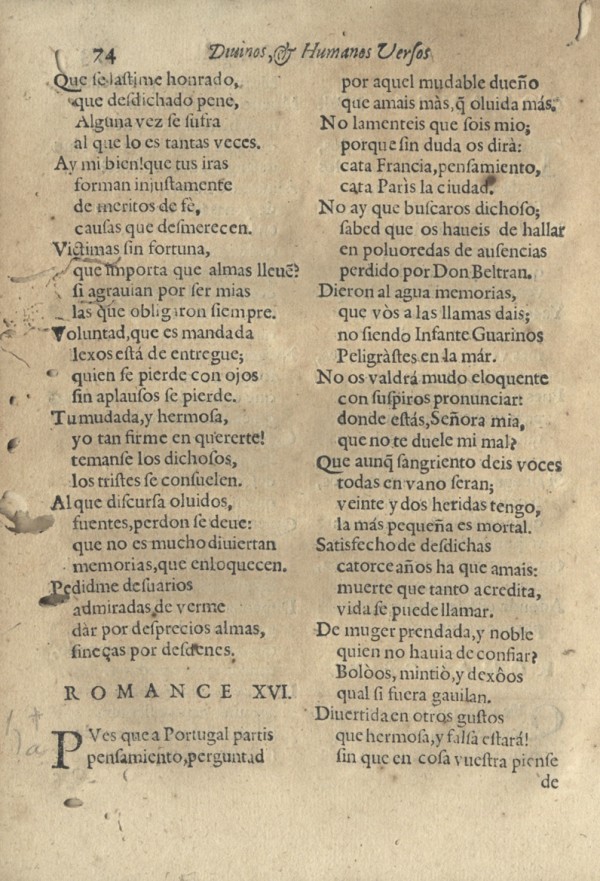 74 Diuinos, & Humanos Versos
Que se lastime honrado,
que desdichado pene,
Alguna vez se sufra
al que lo es tantas veces.
Ay mi bien!que tus iras
forman injustamente
de meritos de fè,
causas que desmerecen.
Victimas sin fortuna,
que importa que almas lleuẽ?
si agrauian por ser mias
las que obligaron siempre.
Voluntad,que es mandada
lexos está de entregue;
quien se pierde con ojos
sin aplausos se pierde.
Tu mudada,y hermosa,
yo tan firme en quererte!
temanse los dichosos,
los tristes se consuelen.
Al que discursa oluidos,
fuentes,perdon se deue:
que no es mucho diuiertan
memorias,que enloquecen.
Pedidme desuarios
admiradas de verme
dàr por desprecios almas,
fineças por desdenes.
ROMANCE XVI.
PVes que a Portugal partis
pensamiento,perguntad
por aquel mudable dueño
que amais màs,q̃ oluida más.
No lamenteis que sois mio;
porque sin duda os dirà:
cata Francia,pensamiento,
cata Parìs la ciudad.
No ay que buscaros dichoso;
sabed que os haueis de hallar
en poluoredas de ausencias
perdido por Don Beltran.
Dieron al agua memorias,
que vòs a las llamas dais;
no siendo Infante Guarinos
Peligràstes en la már.
No os valdrá mudo eloquente
con suspiros pronunciar:
donde estás,Señora mia,
que no te duele mi mal?
Que aunq̃ sangriento deis voces
todas en vano seran;
veinte y dos heridas tengo,
la más pequeña es mortal.
Satisfecho de desdichas
catorce años ha que amais:
muerte que tanto acredita,
vida se puede llamar.
De muger prendada,y noble
quien no hauia de confiar?
Bolòos, mintiò,y dexôos
qual si fuera gauilan.
Diuertida en otros gustos
que hermosa,y falsa estará!
sin que en cosa vuestra piense
de